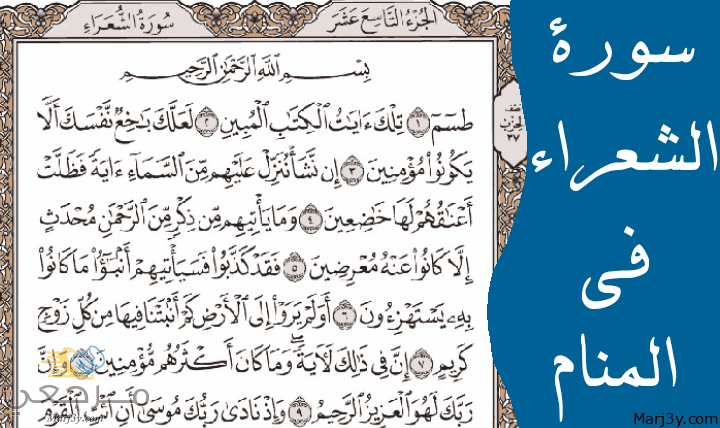 سورة
الشعراء
فى
المنام
الجُزْءُ التَّاسِعَ عَشَرَ
سُورَةُ الشُّعَرَاءِ
بِسْمِ اللَّهِ الرَّحْمَٰنِ الرَّحِيمِ
طسٓمٓ ١ تِلْكَ ءَايَٰتُ الْكِتَٰبِ الْمُبِينِ ٢ لَعَلَّكَ بَٰخِعٌ نَّفْسَكَ أَلَّا
يَكُونُوا۟ مُؤْمِنِينَ ٣ إِن نَّشَأْ نُنَزِّلْ عَلَيْهِم مِّنَ السَّمَآءِ ءَايَةً فَظَلَّتْ
أَعْنَٰقُهُمْ لَهَا خَٰضِعِينَ ٤ وَمَا يَأْتِيهِم مِّن ذِكْرٍ مِّنَ الرَّحْمَٰنِ مُحْدَثٍ
إِلَّا كَانُوا۟ عَنْهُ مُعْرِضِينَ ٥ فَقَدْ كَذَّبُوا۟ فَسَيَأْتِيهِمْ أَنۢبَٰٓؤُا۟ مَا كَانُوا۟
بِهِۦ يَسْتَهْزِءُونَ ٦ أَوَلَمْ يَرَوْا۟ إِلَى الْأَرْضِ كَمْ أَنۢبَتْنَا فِيهَا مِن كُلِّ زَوْجٍ
كَرِيمٍ ٧ إِنَّ فِى ذَٰلِكَ لَءَايَةً ۖ وَمَا كَانَ أَكْثَرُهُم مُّؤْمِنِينَ ٨ وَإِنَّ
رَبَّكَ لَهُوَ الْعَزِيزُ الرَّحِيمُ ٩ وَإِذْ نَادَىٰ رَبُّكَ مُوسَىٰٓ أَنِ ائْتِ الْقَوْمَ
نصف
الحزب
٣٧
مرجعي
Marj3y.com
Marj3y.com